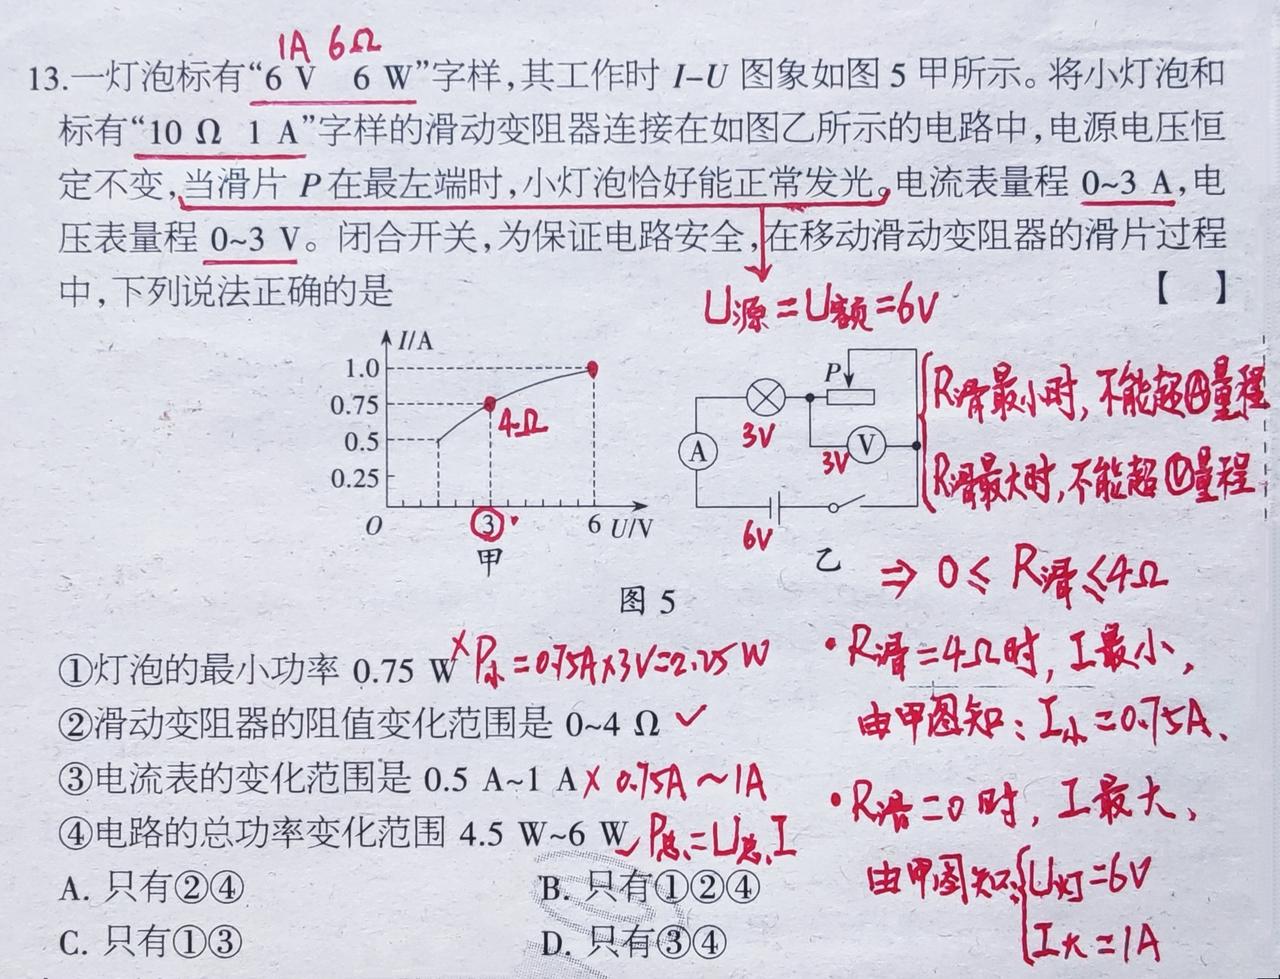 1A 6Ω
13.一灯泡标有“6 V 6 W”字样,其工作时 I-U 图象如图 5 甲所示。将小灯泡和
标有“10 Ω 1 A”字样的滑动变阻器连接在如图乙所示的电路中,电源电压恒
定不变,当滑片 P 在最左端时,小灯泡恰好能正常发光。电流表量程 0~3 A,电
压表量程 0~3 V。闭合开关,为保证电路安全,在移动滑动变阻器的滑片过程
中,下列说法正确的是 【 】
U源=U额=6V
I/A
1.0
0.75
0.5
0.25
O
3
6 U/V
4Ω
甲
P
A
V
3V
3V
6V
乙
图 5
R滑最小时,不能超Ⓐ量程
R滑最大时,不能超Ⓥ量程
⇒ 0≤R滑≤4Ω
①灯泡的最小功率 0.75 W × P小=0.75A×3V=2.25W
②滑动变阻器的阻值变化范围是 0~4 Ω ✓
③电流表的变化范围是 0.5 A~1 A × 0.75A~1A
④电路的总功率变化范围 4.5 W~6 W ✓ P总=U总I
A. 只有②④
B. 只有①②④
C. 只有①③
D. 只有③④
·R滑=4Ω时,I最小,
由甲图知:I小=0.75A、
·R滑=0时,I最大、
由甲图知:U灯=6V
I大=1A